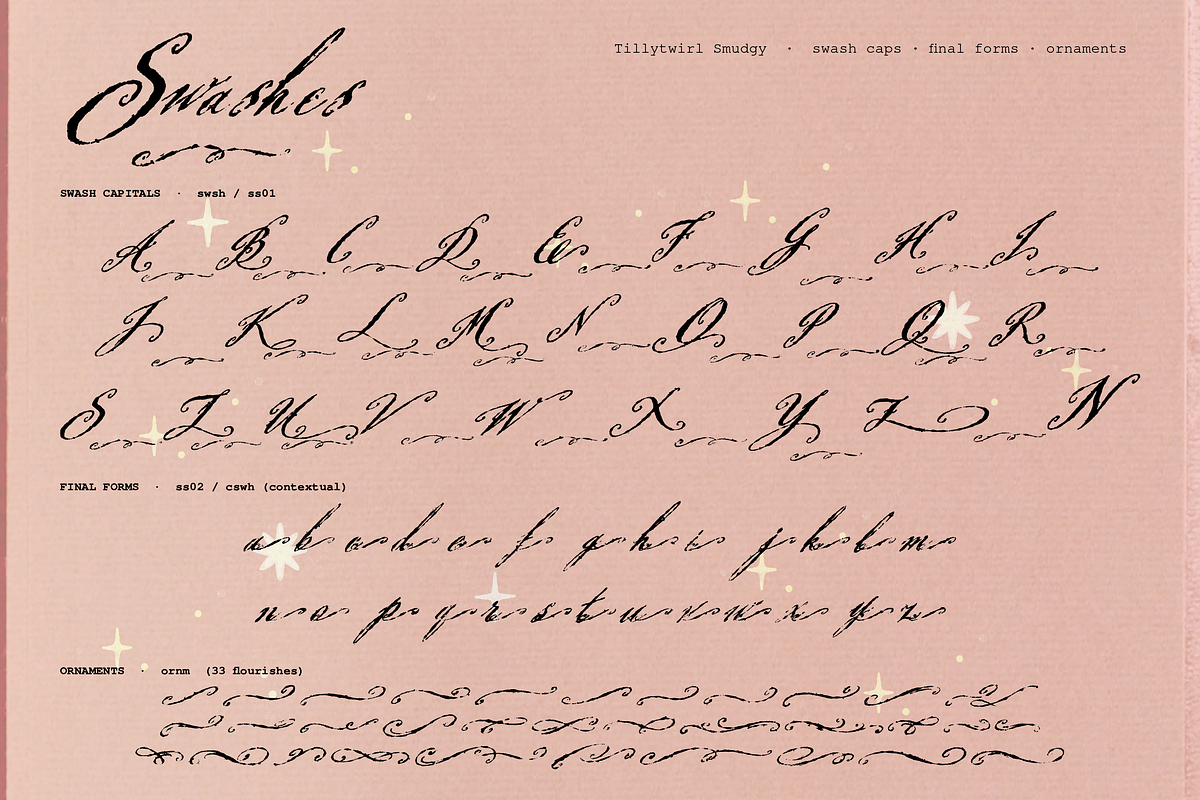 Tillytwirl Smudgy · swash caps · final forms · ornaments
Swashes
SWASH CAPITALS · swsh / ss01
A B C D E F G H I
J K L M N O P Q R
S T U V W X Y Z N
FINAL FORMS · ss02 / cswh (contextual)
a b c d e f g h i j k l m
n o p q r s t u v w x y z
ORNAMENTS · ornm (33 flourishes)